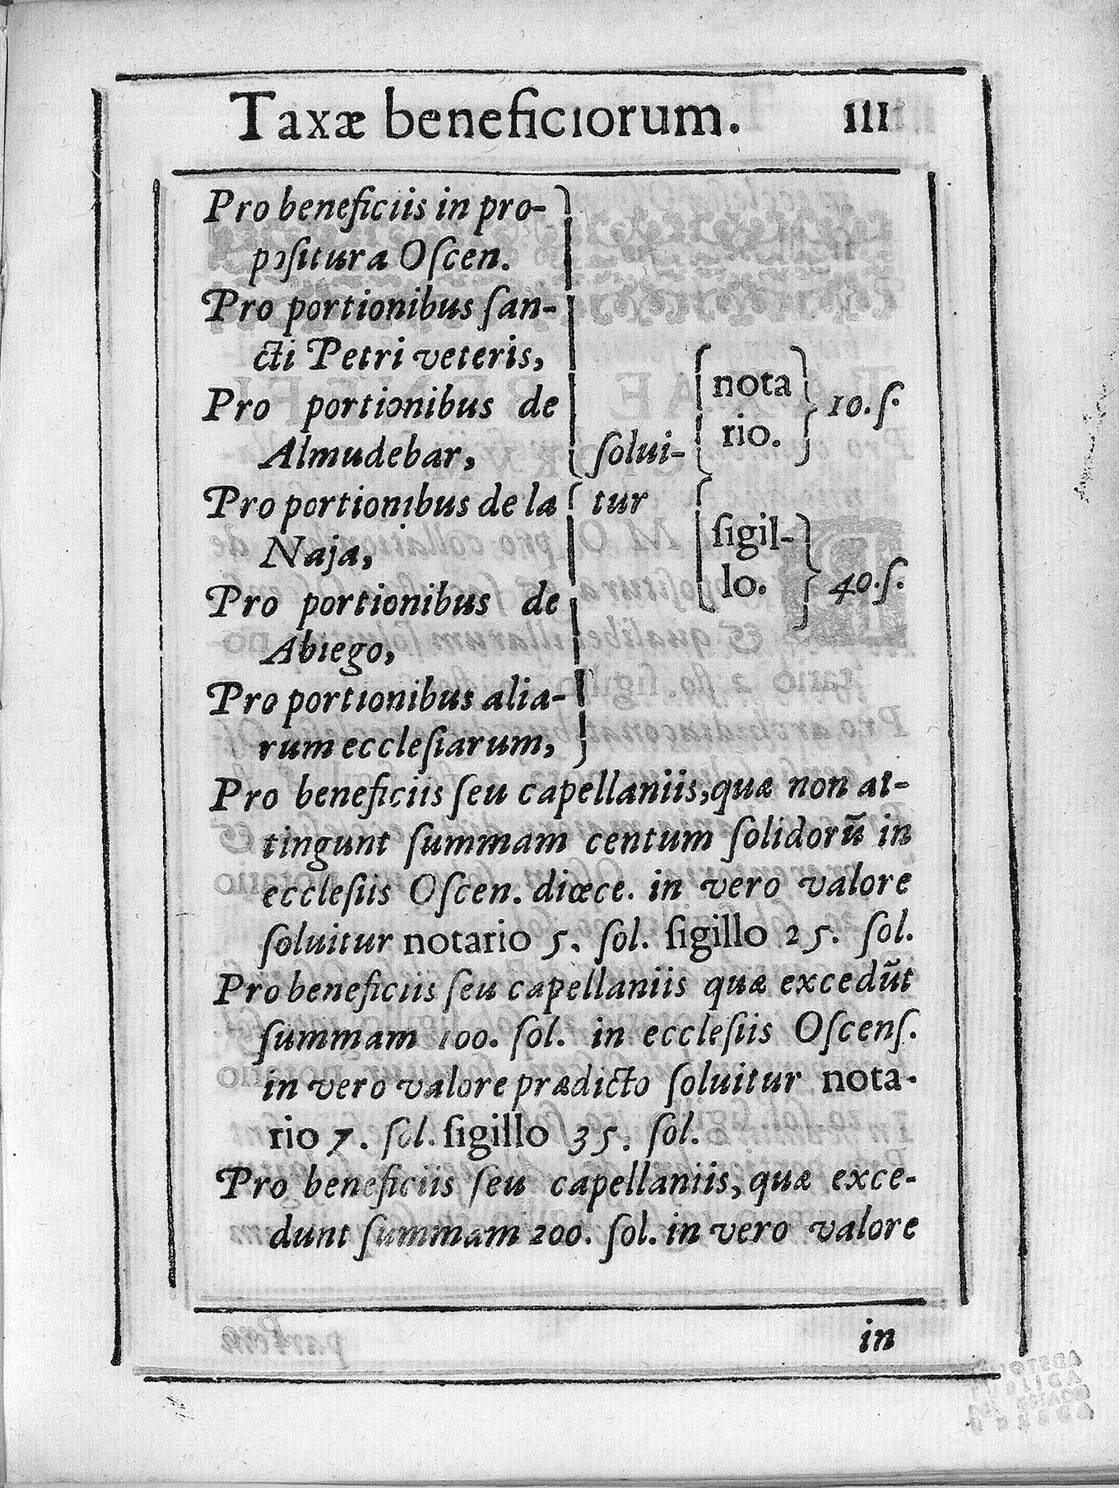 Taxæ beneficiorum. III
Pro beneficiis in pro-
poſitura Oſcen.
Pro portionibus ſan-
cti Petri veteris,
Pro portionibus de
Almudebar,
Pro portionibus de la
Naja,
Pro portionibus de
Abiego,
Pro portionibus alia-
rum eccleſiarum,
ſolui-
tur
nota
rio.
10. ſ.
ſigil-
lo.
40. ſ.
Pro beneficiis ſeu capellaniis, quæ non at-
tingunt ſummam centum ſolidorū in
eccleſiis Oſcen. diœce. in vero valore
ſoluitur notario 5. ſol. ſigillo 25. ſol.
Pro beneficiis ſeu capellaniis quæ excedūt
ſummam 100. ſol. in eccleſiis Oſcenſ.
in vero valore prædicto ſoluitur nota-
rio 7. ſol. ſigillo 35. ſol.
Pro beneficiis ſeu capellaniis, quæ exce-
dunt ſummam 200. ſol. in vero valore
in